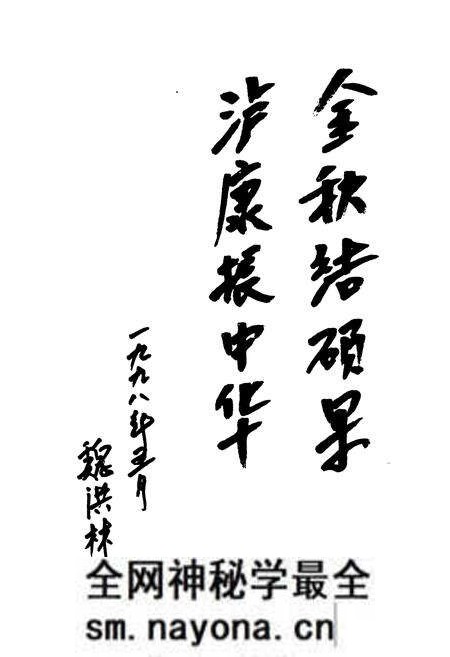 金秋结硕果
泸康振中华
一九九八年五月
魏洪林
全网神秘学最全
sm.nayona.cn